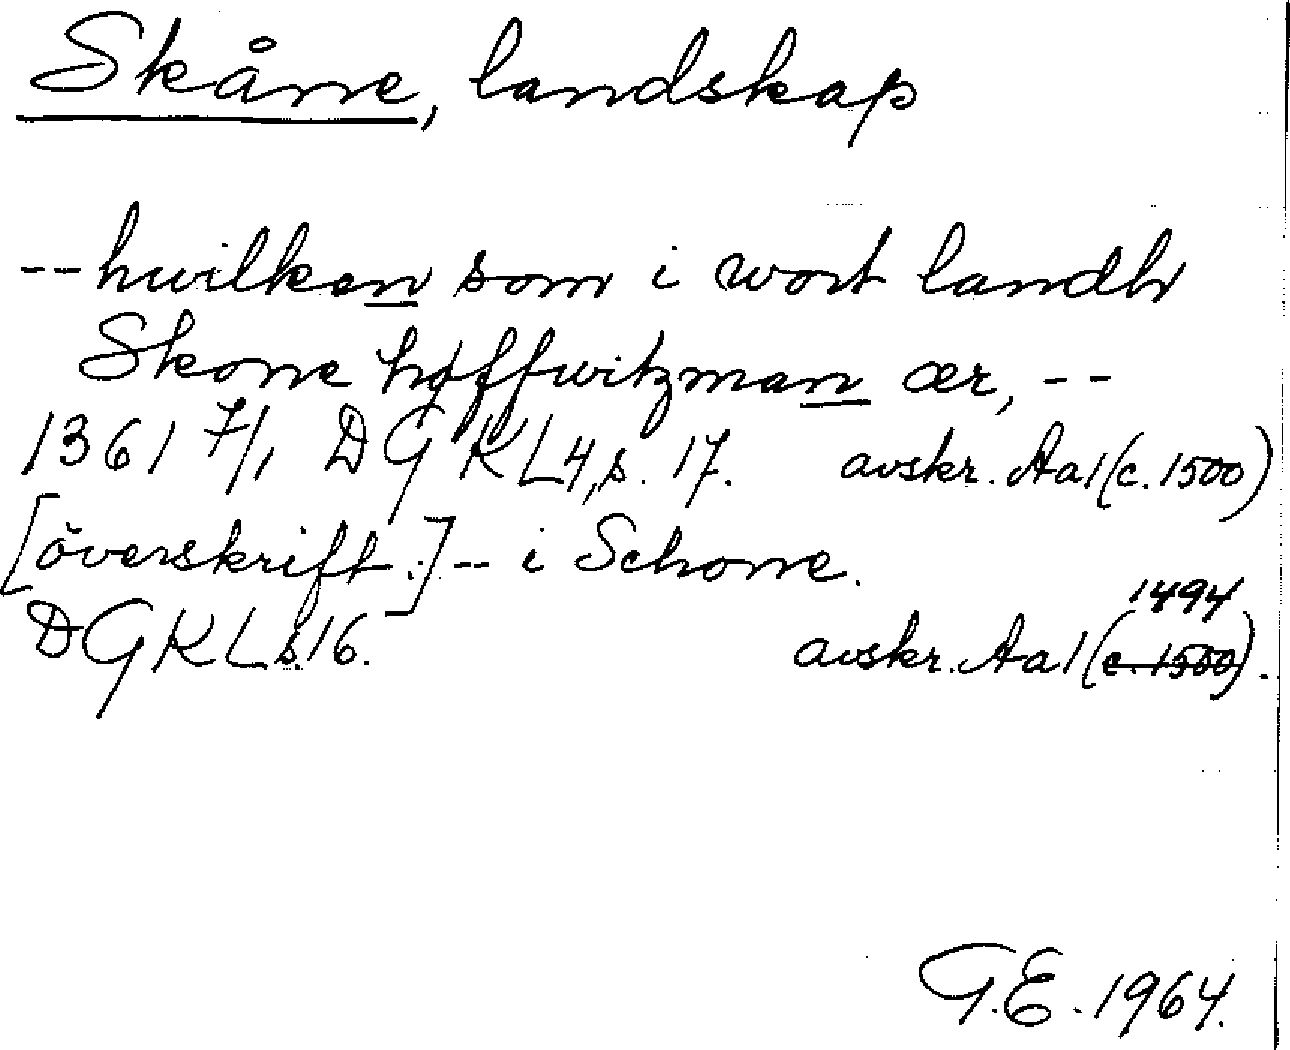 Skåne, landskap
--hwilken som i wort landh
Skone høffwitzman ær, --
1361 7/1, DGKL4, s. 17. avskr. Aa1(c. 1500)
[överskrift:]-- i Schone.
1494
DGKL s.16. avskr. Aa1(c. 1500).
G.E. 1964.